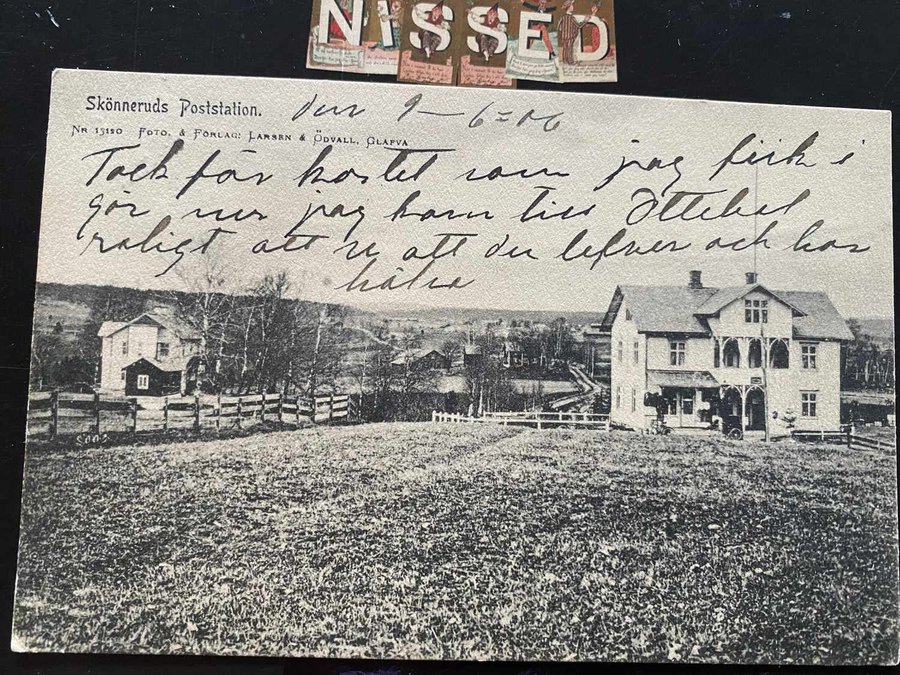 NISSED
Skönneruds Poststation. den 9-6=06
Nr 15120 Foto. & Förlag: Larsen & Ödvall, Glafva
Tack för kortet som jag fick i
gör när jag kom till Ottebol
roligt att se att du lefver och har
hälse